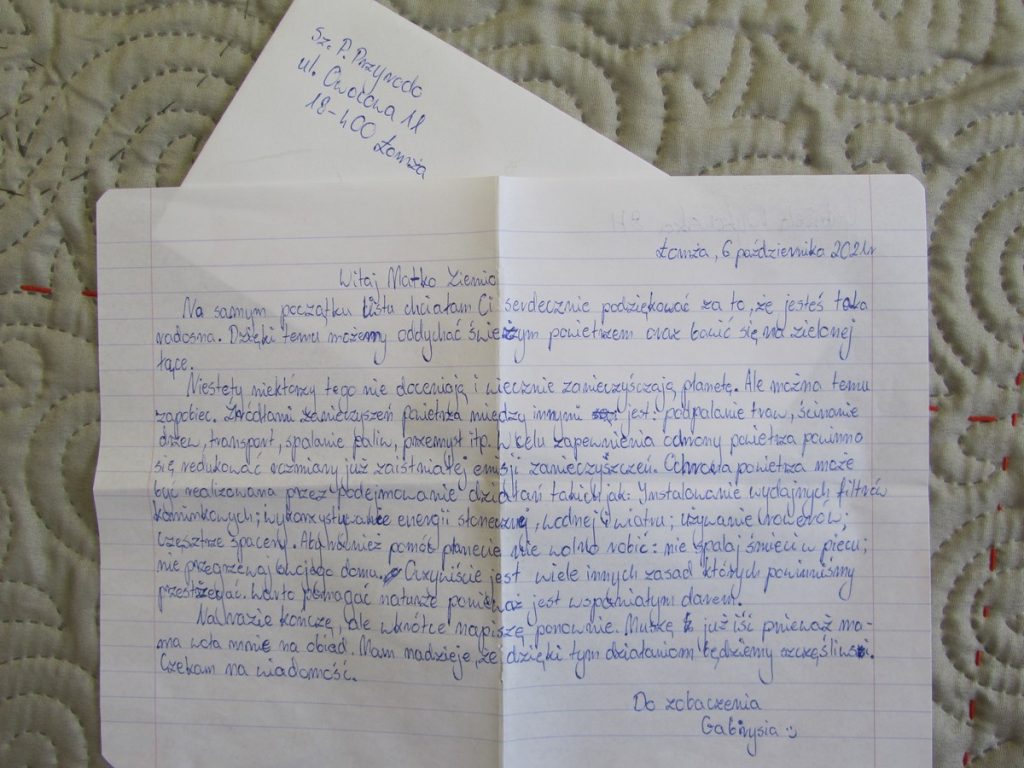 Sz. P. Przyroda
ul. Owocowa 11
18-400 Łomża
Łomża, 6 października 2021r
Witaj Matko Ziemio
Na samym początku listu chciałam Ci serdecznie podziękować za to, że jesteś taka
radosna. Dzięki temu możemy oddychać świeżym powietrzem oraz bawić się na zielonej
łące.
Niestety niektórzy tego nie doceniają i wiecznie zanieczyszczają planetę. Ale można temu
zapobiec. Źródłami zanieczyszeń powietrza między innymi jest: podpalanie traw, ścinanie
drzew, transport, spalanie paliw, przemysł itp. W celu zapewnienia ochrony powietrza powinno
się redukować rozmiary już zaistniałej emisji zanieczyszczeń. Ochrona powietrza może
być realizowana przez podejmowanie działań takich jak: Instalowanie wydajnych filtrów
kominkowych; wykorzystywanie energii słonecznej, wodnej i wiatru; używanie rowerów;
częstrze spacery. Aby również pomóc planecie nie wolno robić: nie spalaj śmieci w piecu;
nie przegrzewaj swojego domu. Oczywiście jest wiele innych zasad których powinniśmy
przestrzegać. Warto pomagać naturze ponieważ jest wspaniałym darem.
Na razie kończę, ale wkrótce napiszę ponownie. Muszę już iść pnieważ ma-
ma woła mnie na obiad. Mam nadzieje, że dzięki tym działaniom będziemy szczęśliwsi.
Czekam na wiadomość.
Do zobaczenia
Gabrysia